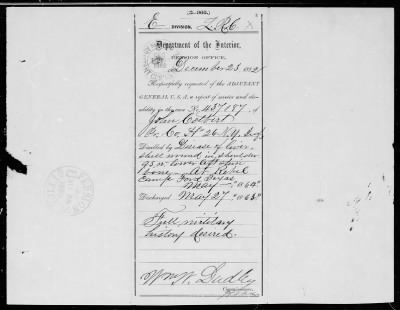 (3—060.)
E DIVISION. L.R.C.
Department of the Interior,
PENSION OFFICE,
December 23, 1882
Respectfully requested of the ADJUTANT
GENERAL U.S.A. a report of service and dis-
ability in the case No 437187, of
John Colbert
Co. H 26 N.Y.
Disabled by Disease of liver
shell wound in shoulder
lower
bone, At Rebel
Camp Ford Texas
May — 1864
Discharged May 27 1865
Full military
history desired.
Wm W. Dudley
Commissioner.